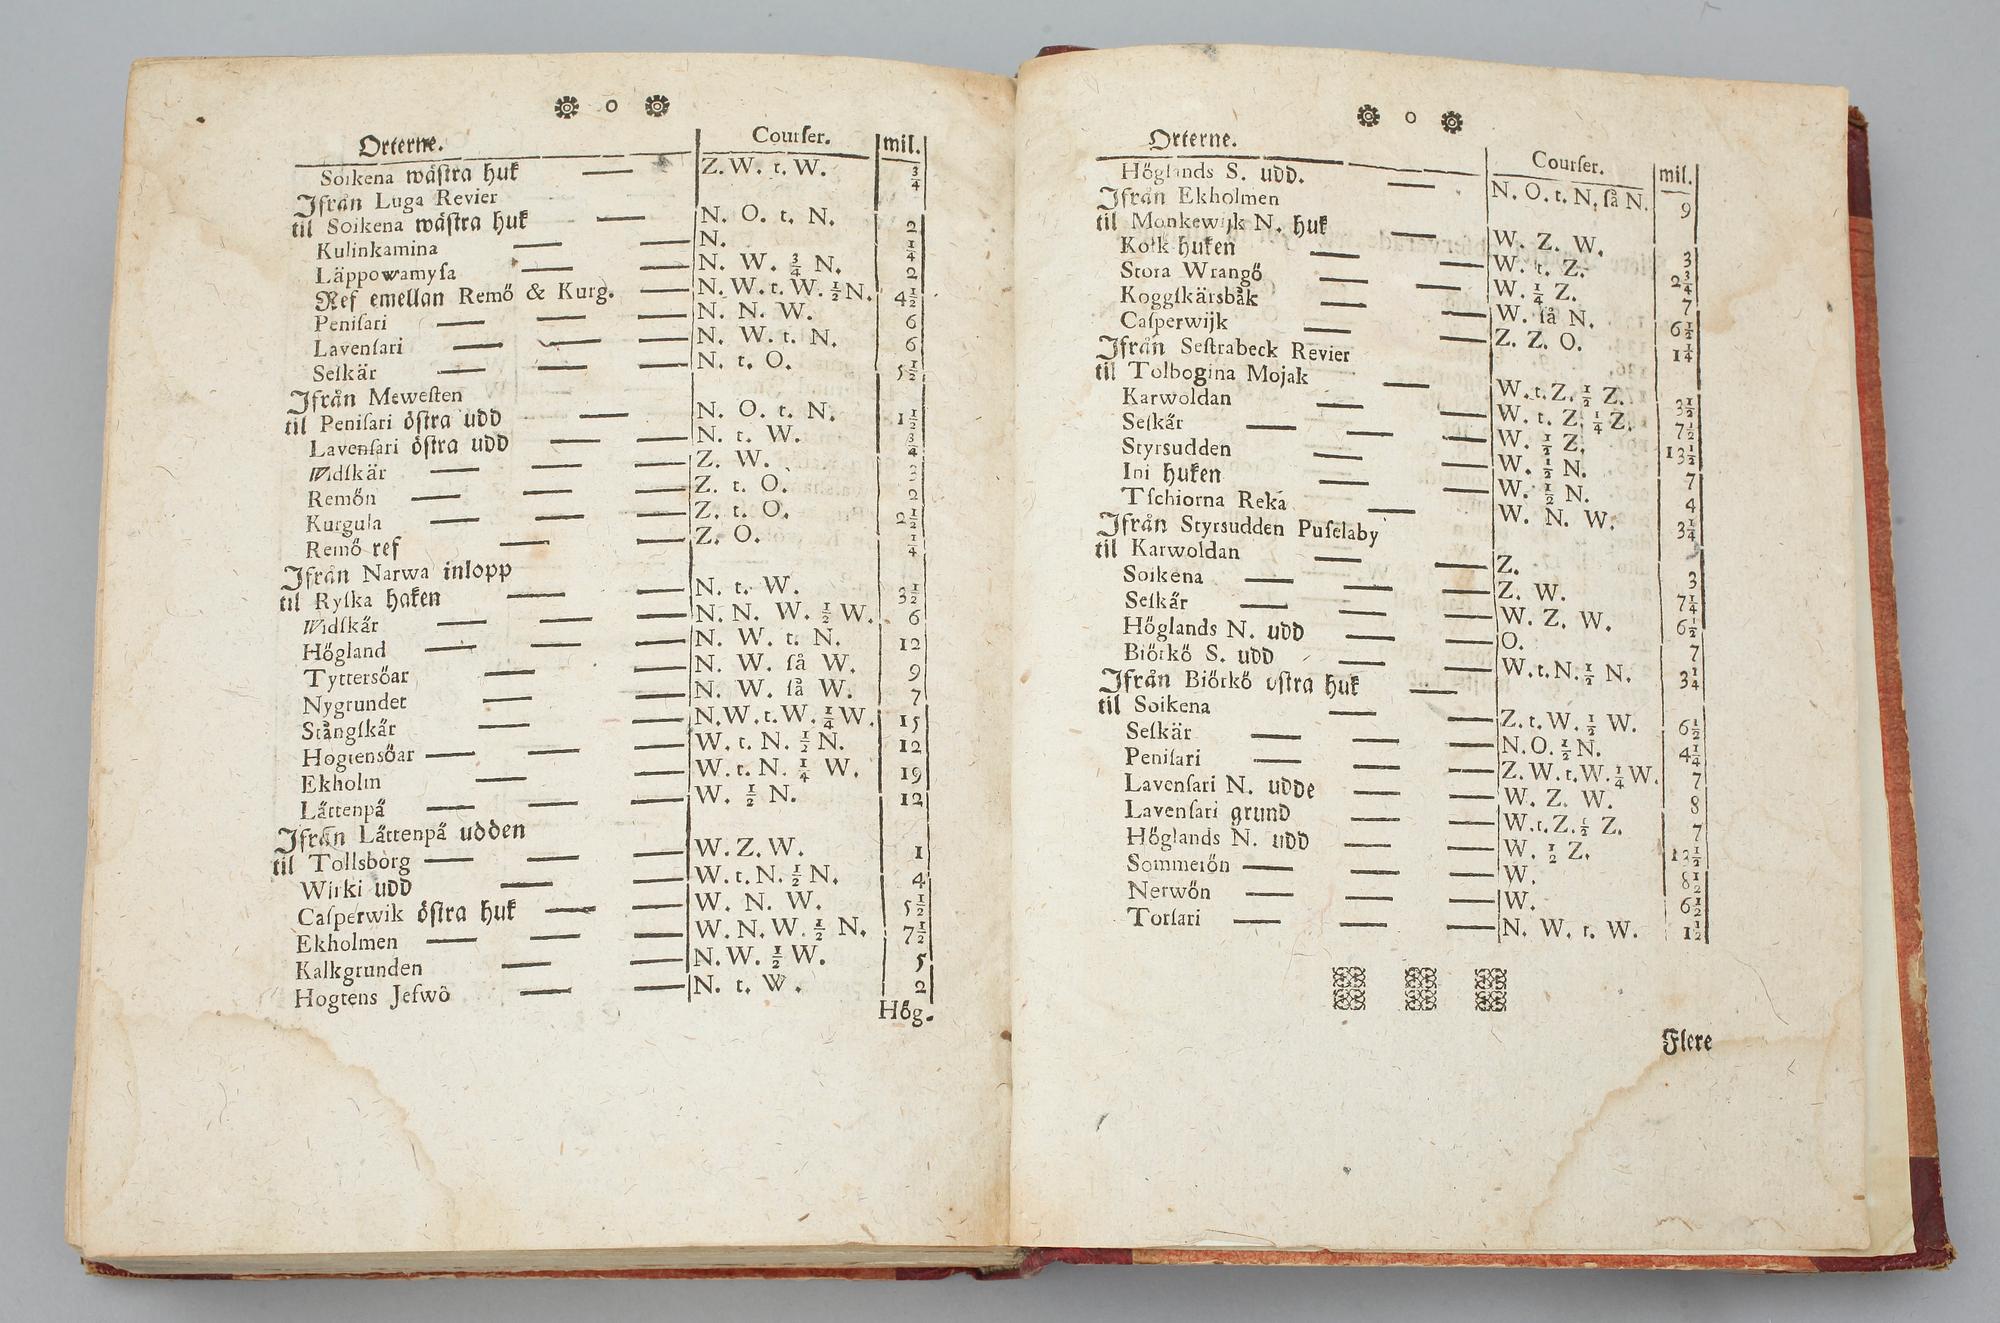 o
Orterne. Courſer. mil.
Soikena wäſtra huk — Z. W. t. W. 3/4
Ifrån Luga Revier
til Soikena wäſtra huk — N. O. t. N. 2
Kulinkamina — — N. 1/4
Läppowamyſa — — N. W. 3/4 N. 2
Ref emellan Remő & Kurg. — N. W. t. W. 1/2 N. 4 1/2
Peniſari — — — N. N. W. 6
Lavenſari — — — N. W. t. N. 6
Seſkär — — — N. t. O. 5 1/2
Ifrån Meweſten
til Peniſari öſtra udd — N. O. t. N. 1 1/2
Lavenſari öſtra udd — — N. t. W. 3/4
Widſkär — — — Z. W.
Remőn — — — Z. t. O. 2
Kurgula — — — Z. t. O. 2 1/2
Remő ref — — Z. O. 1/4
Ifrån Narwa inlopp
til Ryſka haken — — N. t. W. 3 1/2
Widſkär — — — N. N. W. 1/2 W. 6
Hőgland — — — N. W. t. N. 12
Tyttersőar — — N. W. ſå W. 9
Nygrundet — — N. W. ſå W. 7
Stångſkär — — N. W. t. W. 1/4 W. 15
Hogtensőar — — — W. t. N. 1/2 N. 12
Ekholm — — W. t. N. 1/4 W. 19
Lättenpä — — — W. 1/2 N. 12
Ifrån Lättenpä udden
til Tollsborg — — — W. Z. W. 1
Wirki udd — — W. t. N. 1/2 N. 4
Caſperwik öſtra huk — — W. N. W. 5 1/2
Ekholmen — — — W. N. W. 1/2 N. 7 1/2
Kalkgrunden — — N. W. 1/2 W. 5
Hogtens Jeſwö — — N. t. W. 2
Hőg.
o
Orterne. Courſer. mil.
Hőglands S. udd. — N. O. t. N. ſå N. 9
Ifrån Ekholmen
til Monkewijk N. huk — W. Z. W. 3
Kolk huken — — W. t. Z. 2 3/4
Stora Wrangő — — W. 1/4 Z. 7
Koggſkärsbåk — — W. ſå N. 6 1/2
Caſperwijk — — Z. Z. O. 1 1/4
Ifrån Seſtrabeck Revier
til Tolbogina Mojak — W. t. Z. 1/2 Z. 3 1/2
Karwoldan — — W. t. Z. 1/4 Z. 7 1/2
Seſkär — — — W. 1/2 Z. 13 1/2
Styrsudden — — W. 1/2 N. 7
Ini huken — — W. 1/2 N. 4
Tſchiorna Reka — W. N. W. 3 1/4
Ifrån Styrsudden Puſelaby
til Karwoldan — — Z. 3
Soikena — — — Z. W. 7 1/4
Seſkär — — — W. Z. W. 6 1/2
Hőglands N. udd — — O. 7
Biőrkő S. udd — — W. t. N. 1/2 N. 3 1/4
Ifrån Biőrkő oſtra huk —
til Soikena — — Z. t. W. 1/2 W. 6 1/2
Seſkär — — — N. O. 1/2 N. 4 1/4
Peniſari — — — Z. W. t. W. 1/4 W. 7
Lavenſari N. udde — — W. Z. W. 8
Lavenſari grund — — W. t. Z. 1/2 Z. 7
Hőglands N. udd — — W. 1/2 Z.
Sommerőn — — — W. 8 1/2
Nerwőn — — W. 6 1/2
Torſari — — — N. W. t. W. 1 1/2
Flere